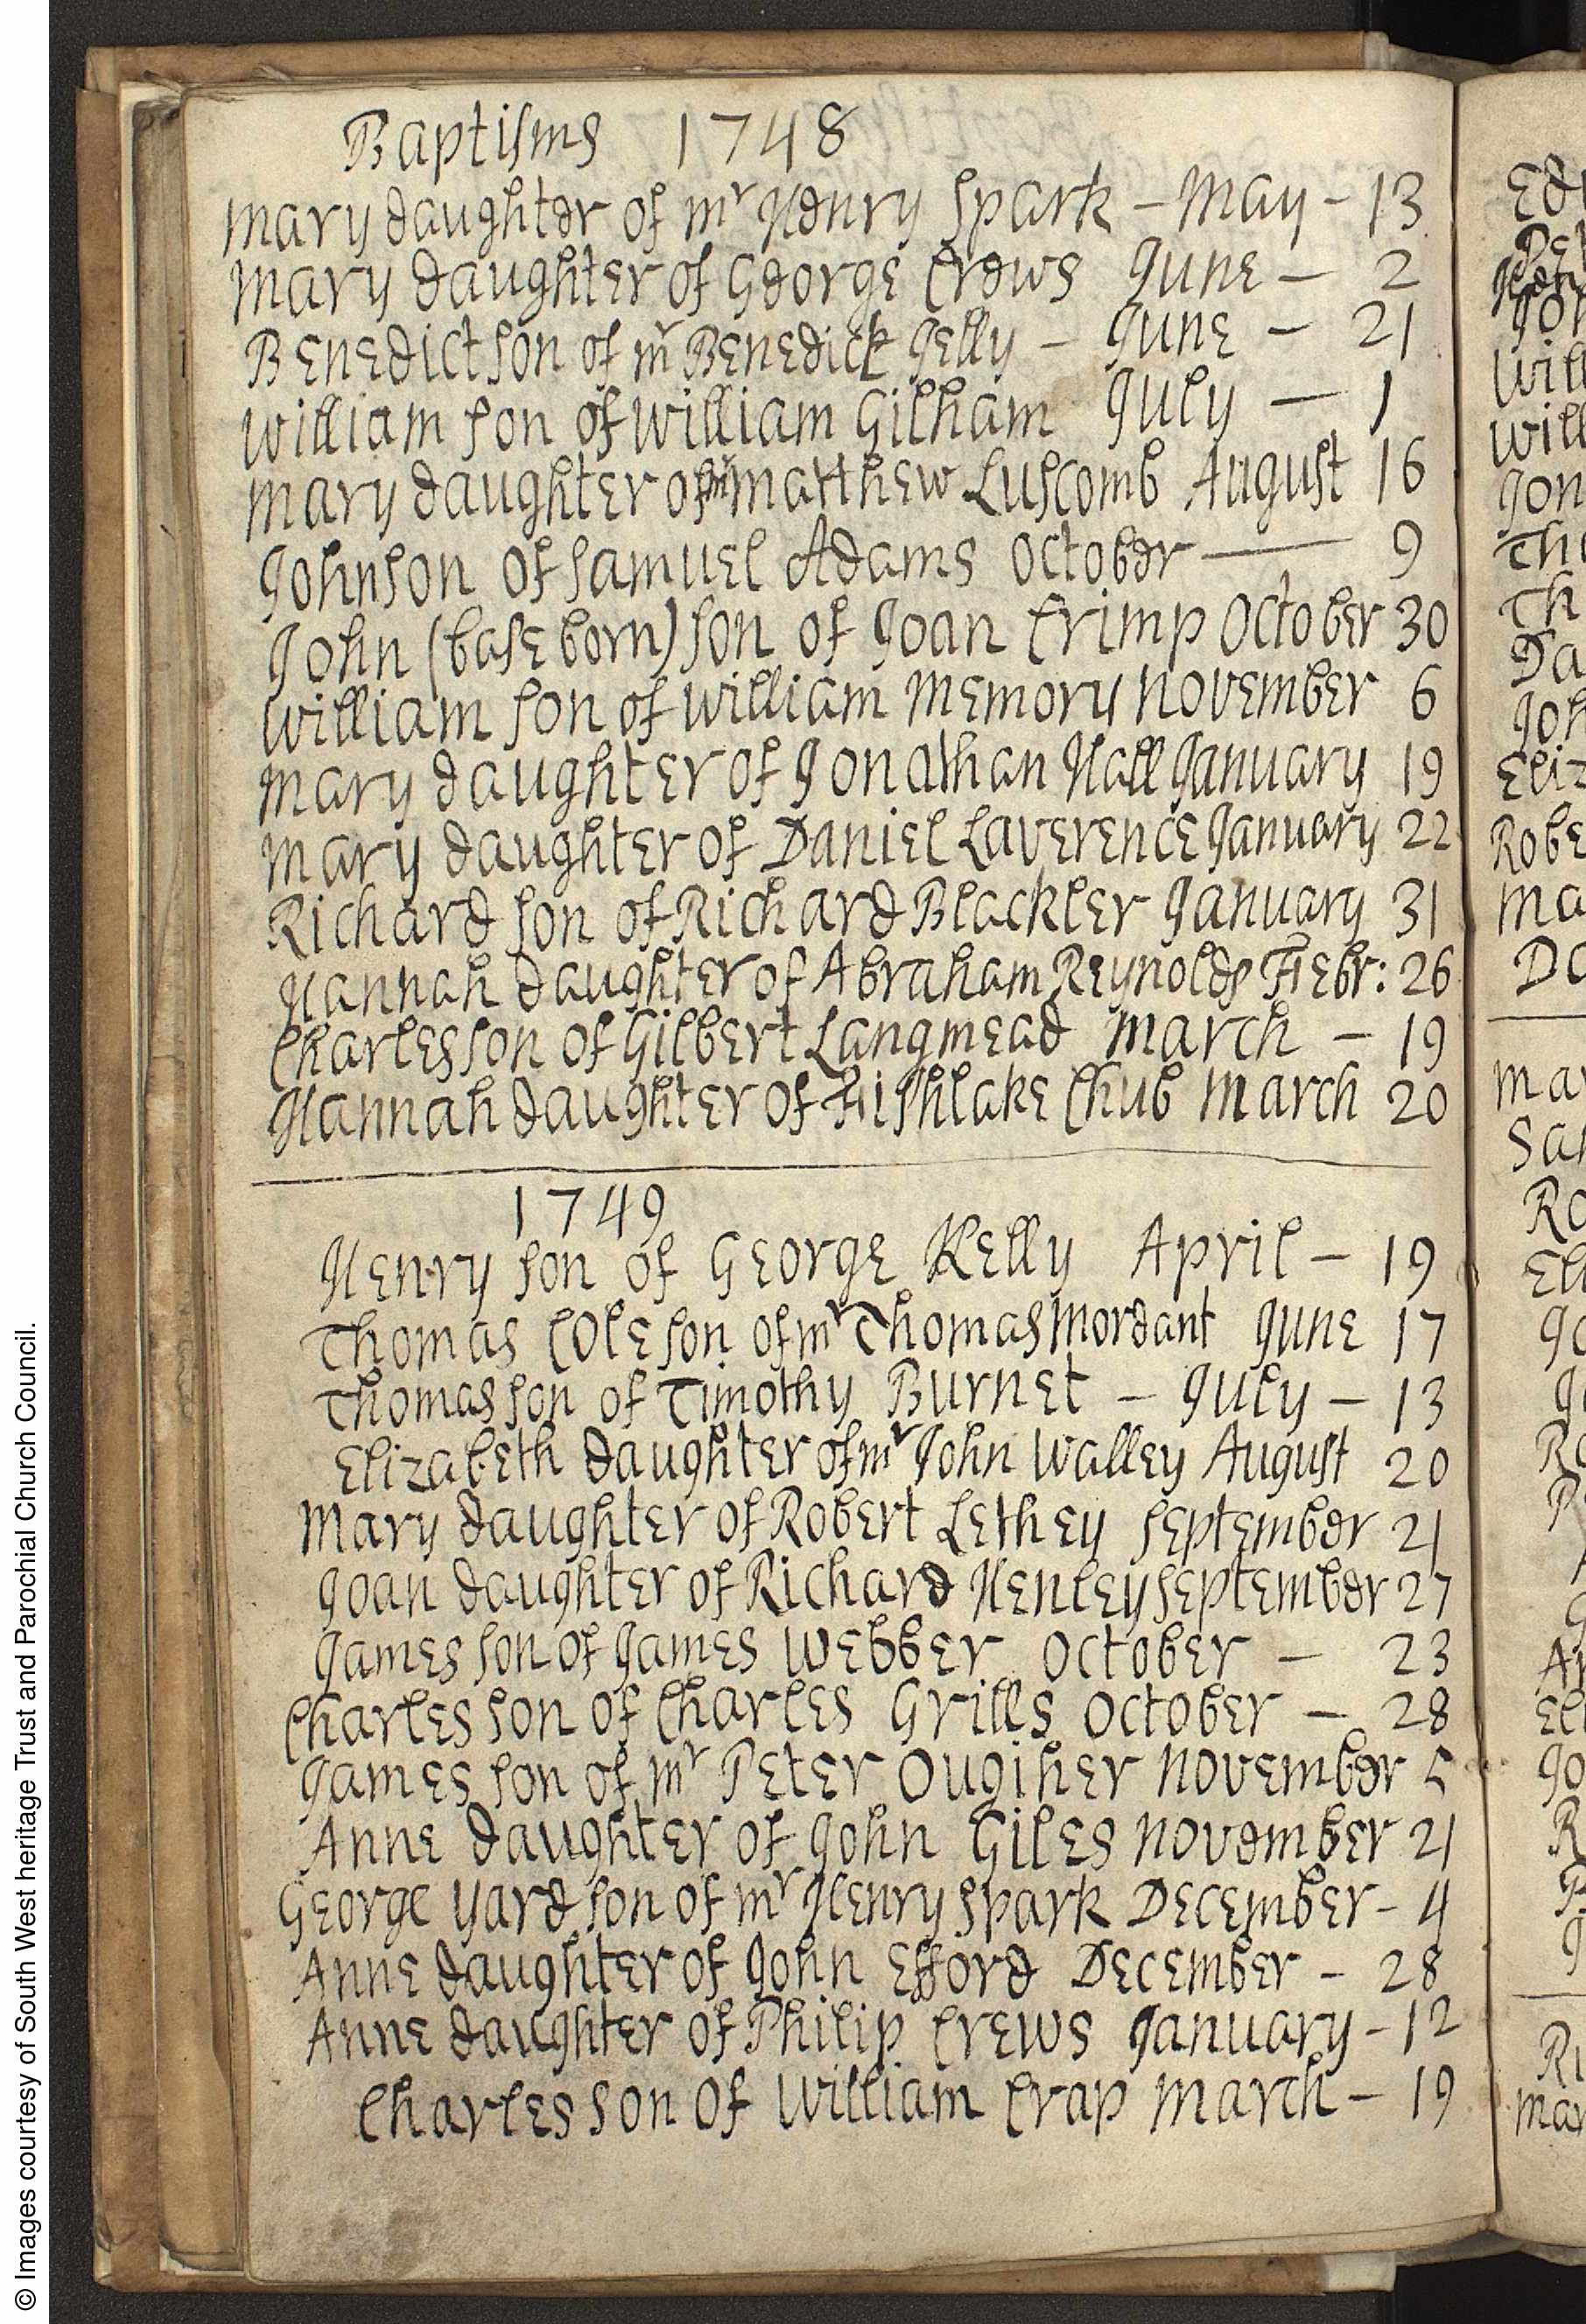 Baptisms 1748
Mary daughter of Mr Henry Spark - May - 13
Mary daughter of George Crews June - 2
Benedict son of Mr Benedick Jelly - June - 21
William son of William Gilham July - 1
Mary daughter of Mr Matthew Luscomb August 16
John son of Samuel Adams October - 9
John (base born) son of Joan Crimp October 30
William son of William Memory November 6
Mary daughter of Jonathan Hall January 19
Mary daughter of Daniel Laverence January 22
Richard son of Richard Blackler January 31
Hannah daughter of Abraham Reynolds Febr: 26
Charles son of Gilbert Langmead March - 19
Hannah daughter of Fishlake Chub March 20
1749
Henry son of George Kelly April - 19
Thomas Cole son of Mr Thomas Mordant June 17
Thomas son of Timothy Burnet - July - 13
Elizabeth daughter of Mr John Walley August 20
Mary daughter of Robert Lethey September 21
Joan daughter of Richard Henley September 27
James son of James Webber October - 23
Charles son of Charles Grills October - 28
James son of Mr Peter Ougiher November 5
Anne daughter of John Giles November 21
George Yard son of Mr Henry Spark December - 4
Anne daughter of John Efford December - 28
Anne daughter of Philip Crews January - 12
Charles son of William Crap March - 19
© Images courtesy of South West heritage Trust and Parochial Church Council.